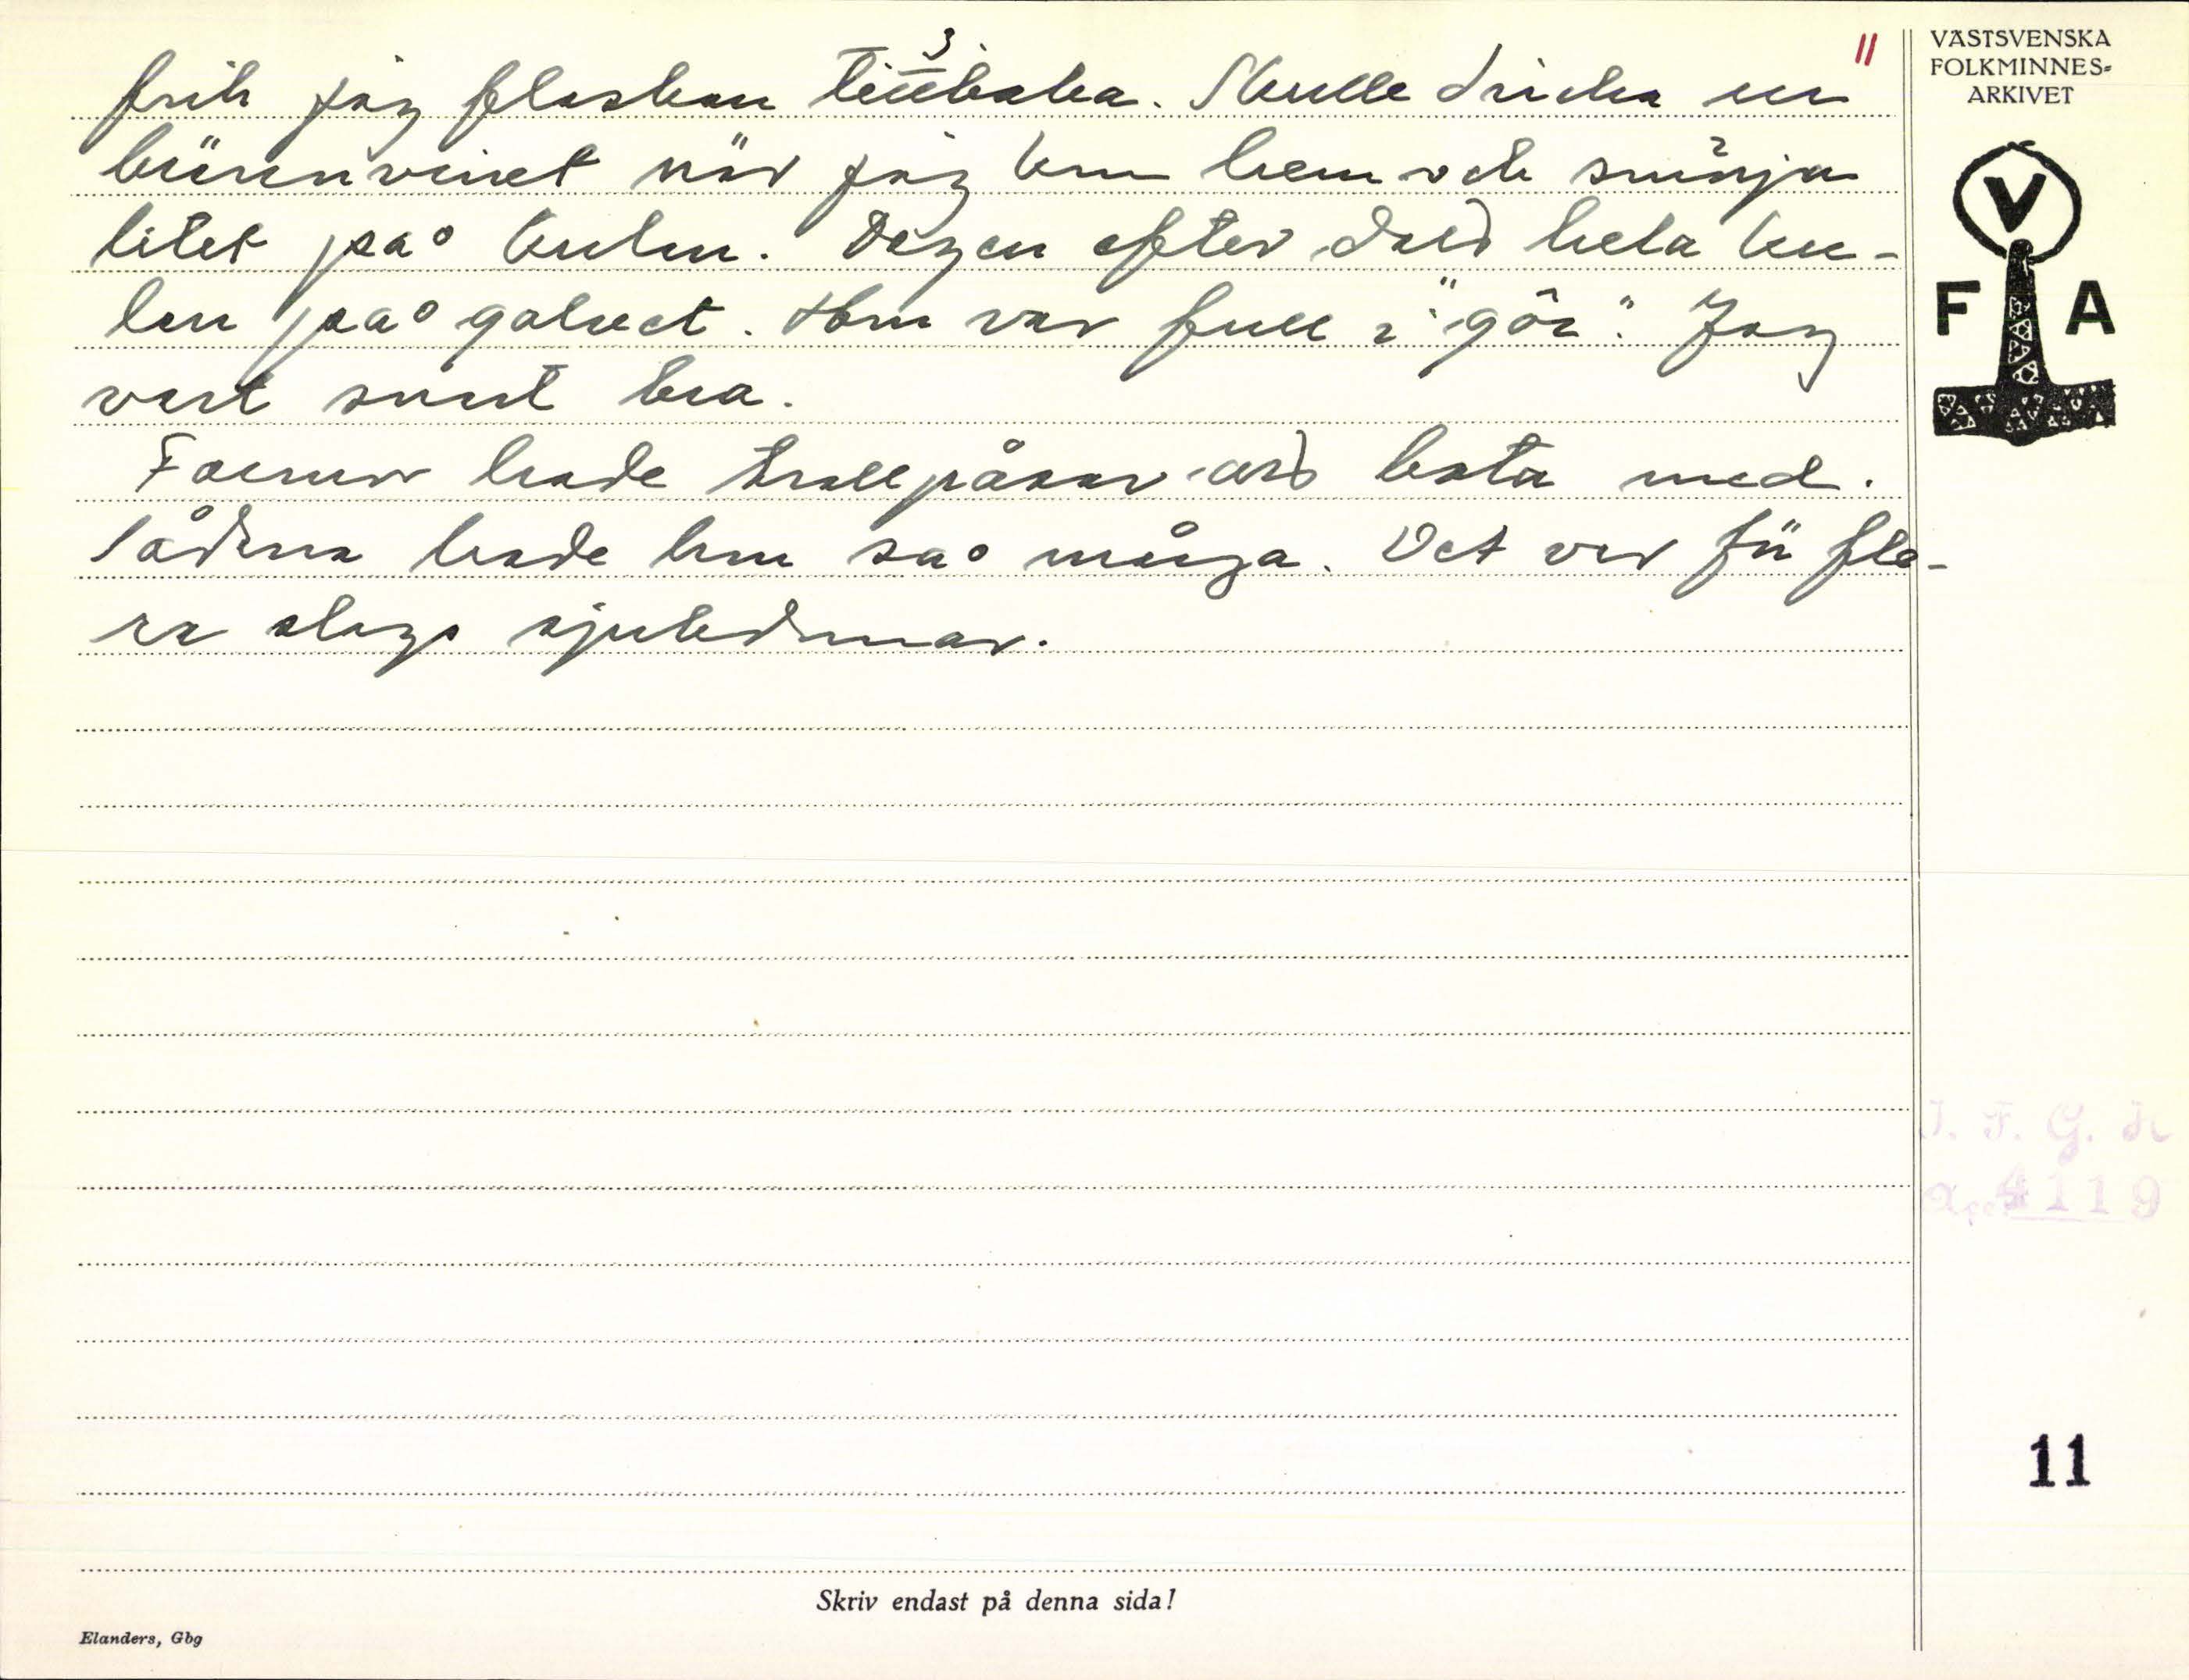 3
fick jag flaskan tillbaka. Skulle dricka ur
brännvinet när jag kom hem och smörja
litet på kulan. Dagen efter drabb hela ku-
lan på golvet. Hon var full i "gör". Jag
vart snart bra.
Farmor hade trollpåsar bota med.
Sådana hade hon så många. Det var för fle-
ra slags sjukdomar.
11
VÄSTSVENSKA
FOLKMINNES-
ARKIVET
V
F A
4119
11
Skriv endast på denna sida!
Elanders, Gbg